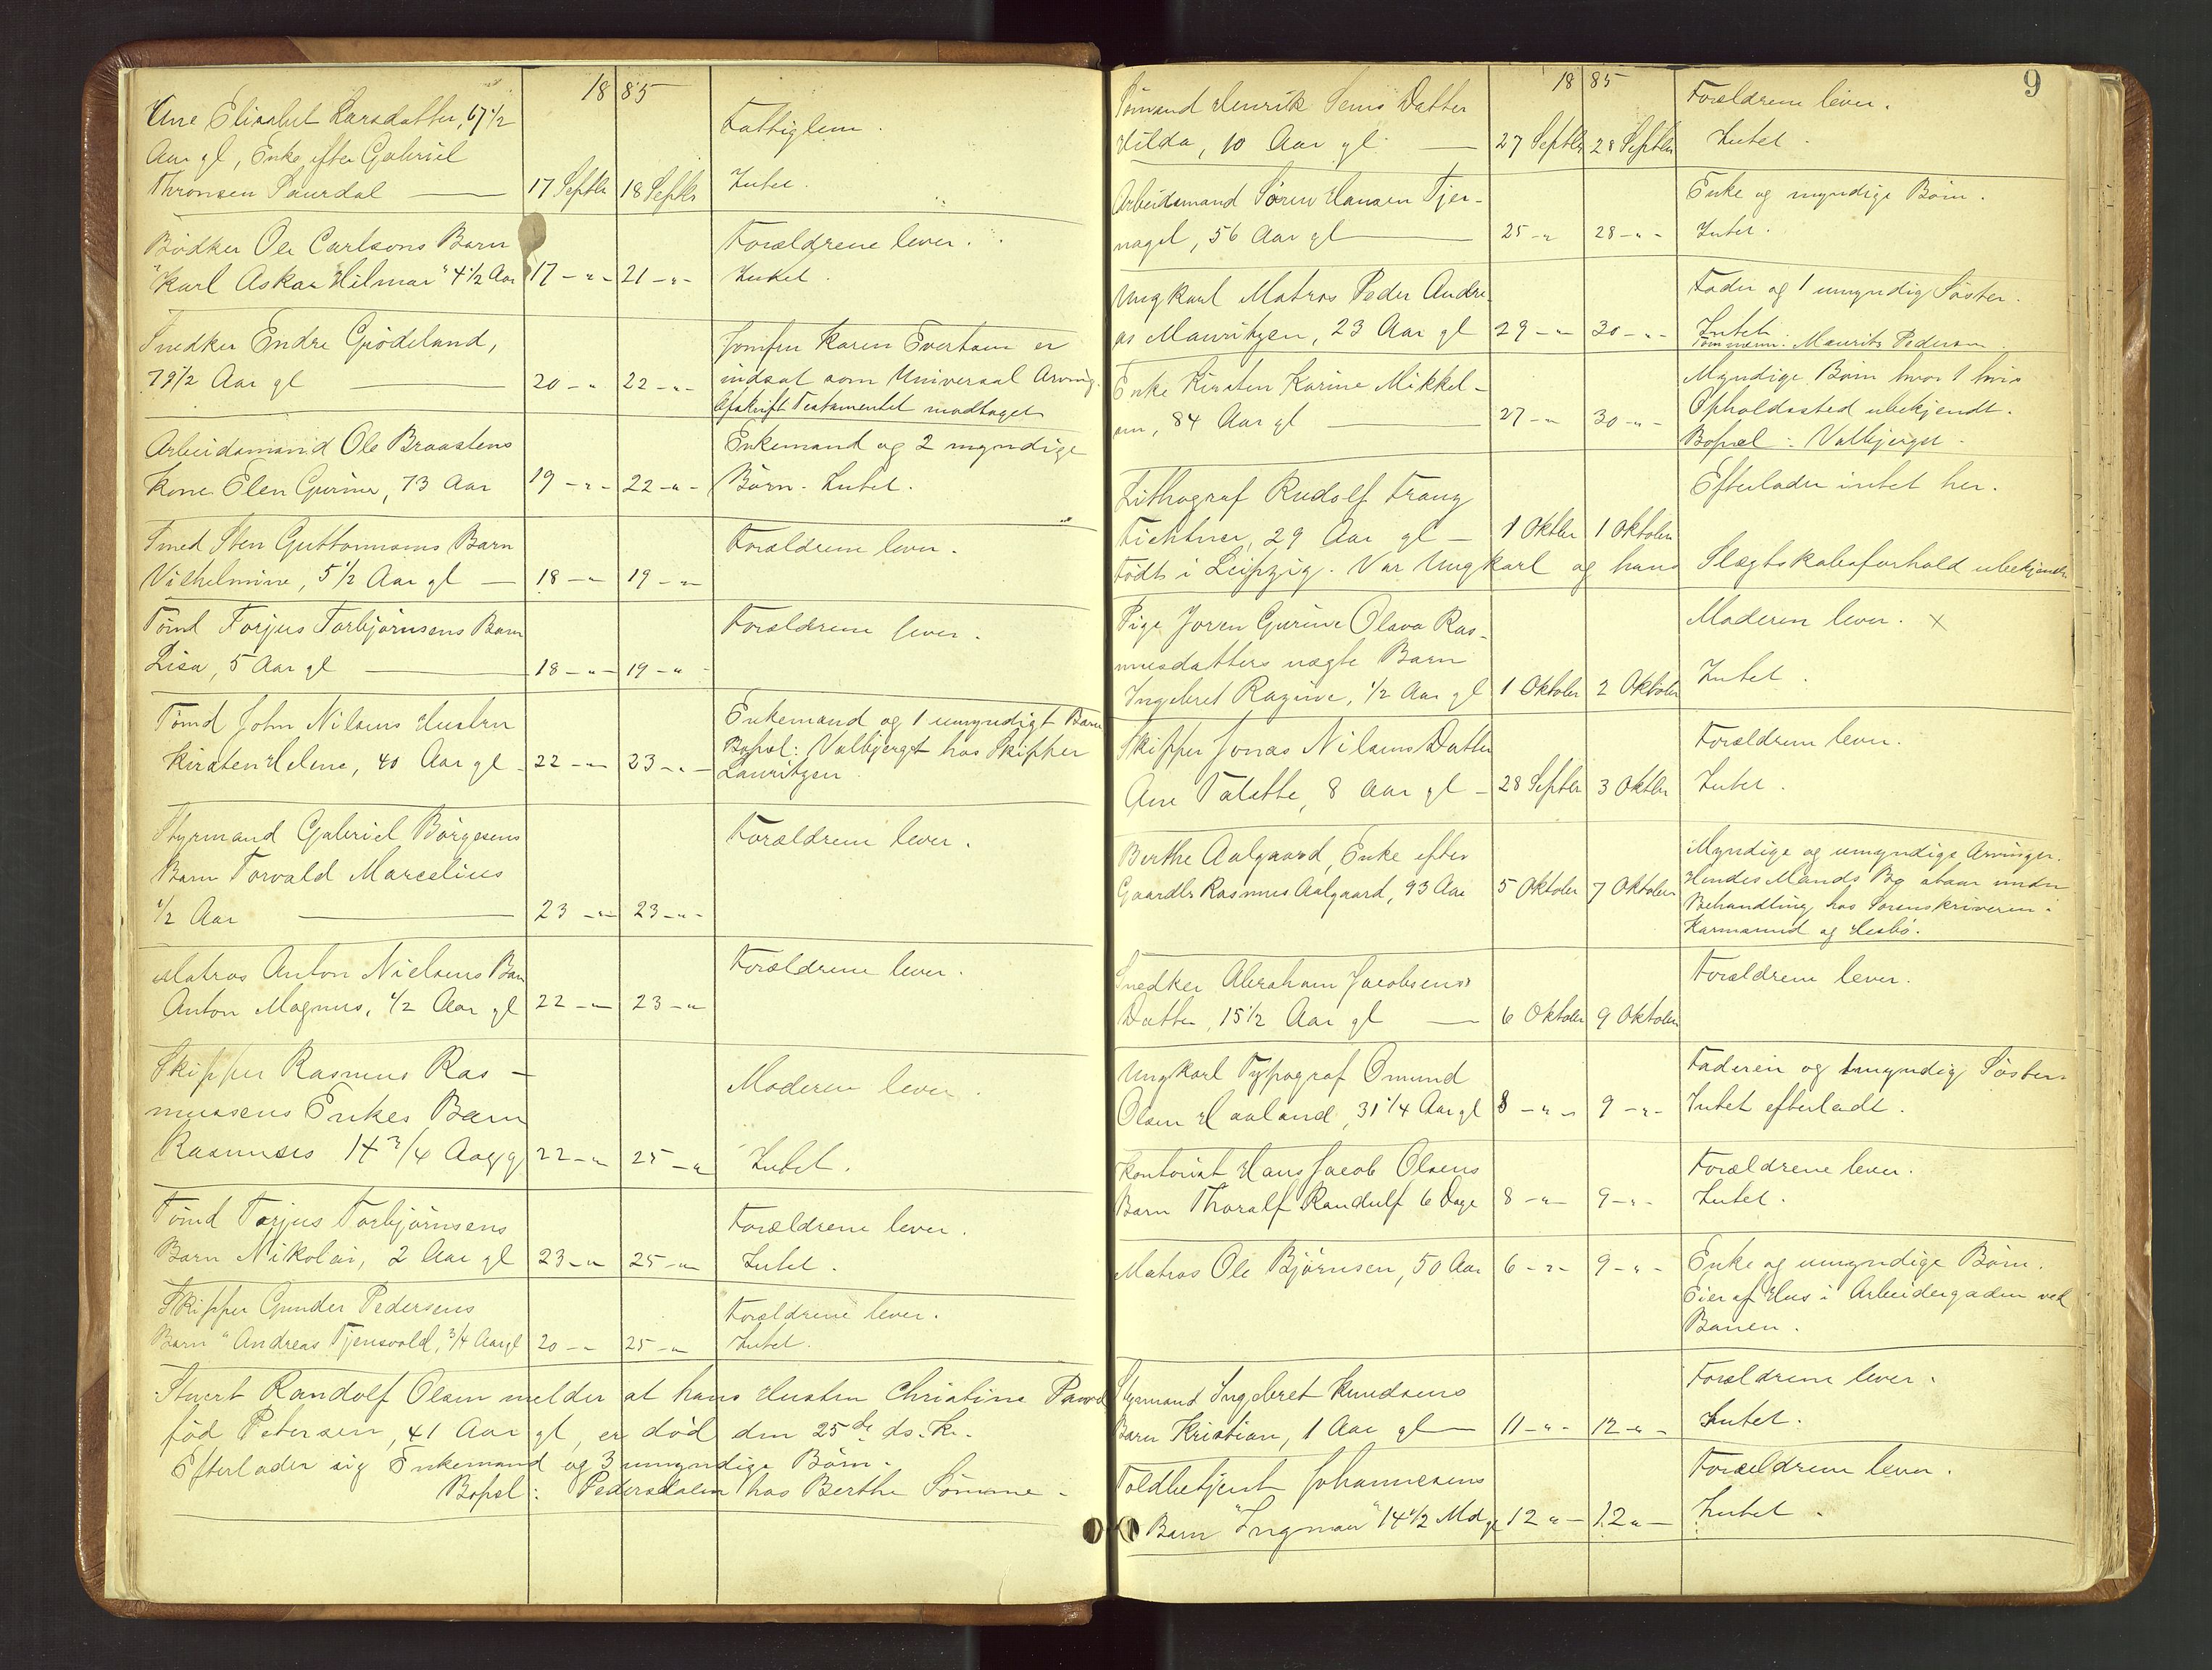 1885
Ane Elisabet Larsdatter, 67 1/2
Aar gl, Enke efter Gabriel
Thronsen Saurdal — 17 Septbr 18 Septbr
Fattiglem.
Intet.
Bødker Ole Carlsons Barn
"Karl Askar Hilmar" 4 1/2 Aar 17 -"- 21 -"-
Forældrene lever.
Intet.
Snedker Endre Grødeland,
79 1/2 Aar gl — 20 -"- 22 -"-
Jomfru Karen Evertsen er
indsat som Universal Arving.
Afskrift Testamentet modtaget
Arbeidsmand Ole Braastens
Kone Elen Gurine, 73 Aar 19 -"- 22 -"-
Enkemand og 2 myndige
Børn. Intet.
Smed Sten Guttormsens Barn
Vilhelmine, 5 1/2 Aar gl — 18 -"- 19 -"-
Forældrene lever.
Tømd Torjus Torbjørnsens Barn
Lisa, 5 Aar gl — 18 -"- 19 -"-
Forældrene lever.
Tømd John Nilsens Hustru
Kirsten Helene, 40 Aar gl 22 -"- 23 -"-
Enkemand og 1 umyndigt Barn
Bopæl: Valbjerget hos Skipper
Lauritzen
Styrmand Gabriel Børgesens
Barn Torvald Marcelius
1/2 Aar — 23 -"- 23 -"-
Forældrene lever.
Matros Anton Nielsens Barn
Anton Magnus, 1/2 Aar gl 22 -"- 23 -"-
Forældrene lever.
Skipper Rasmus Ras-
mussens Enkes Barn
Rasmus 14 3/4 Aar gl 22 -"- 25 -"-
Moderen lever.
Intet.
Tømd Torjus Torbjørnsens
Barn Nikolai, 2 Aar gl 23 -"- 25 -"-
Forældrene lever.
Intet.
Skipper Gunder Pedersens
Barn "Andreas Tjensvold, 3/4 Aar gl 20 -"- 25 -"-
Forældrene lever.
Intet.
Stuert Randolf Olsen melder at hans Hustru Christine
fød Petersen, 41 Aar gl, er død den 25de ds. Kl.
Efterlader sig Enkemand og 3 umyndige Børn.
Bopæl: Pedersdalen hos Berthe Sømme.
9
1885
Sømand Henrik Sems Datter
Hilda, 10 Aar gl — 27 Septbr 28 Septbr
Forældrene lever.
Intet.
Arbeidsmand Søren Hansen Tjer-
nagel, 56 Aar gl — 25 -"- 28 -"-
Enke og myndige Børn.
Intet.
Ungkarl Matros Peder Andre-
as Mauritzen, 23 Aar gl 29 -"- 30 -"-
Fader og 1 umyndig Søster.
Intet.
Tømmerm. Maurits Pedersen
Enke Kirsten Karine Mikkel-
sen, 84 Aar gl — 27 -"- 30 -"-
Myndige Børn hvor 1 hvis
Opholdssted ubekjendt.
Bopæl: Valbjerget.
Lithograf Rudolf Franz
Fichtner, 29 Aar gl — 1 Oktbr 1 Oktober
Efterlader intet her.
Født i Leipzig. Var Ungkarl og hans Slægtskabsforhold ubekjendt
Pige Joren Gurine Olava Ras-
musdatters uægte Barn
Ingebret Ragine, 1/2 Aar gl 1 Oktober 2 Oktober
Moderen lever. x
Intet.
Skipper Jonas Nilsens Datter
Ane Talette, 8 Aar gl — 28 Septbr 3 Oktbr
Forældrene lever.
Intet.
Berthe Aalgaard, Enke efter
Gaardbr Rasmus Aalgaard, 93 Aar 5 Oktober 7 Oktober
Myndige og umyndige Arvinger.
Hendes Mands Bo staar under
Behandling hos Sorenskriveren i
Karmsund og Hesbø.
Snedker Abraham Jacobsens
Datter, 15 1/2 Aar gl — 6 Oktober 9 Oktober
Forældrene lever.
Ungkarl Typograf Omund
Olsen Haaland, 31 1/4 Aar gl 8 -"- 9 -"-
Faderen og umyndig Søster.
Intet efterladt.
Kontorist Hans Jacob Olsens
Barn Thoralf Randulf 6 Dage 8 -"- 9 -"-
Forældrene lever.
Intet.
Matros Ole Bjørnsen, 50 Aar 6 -"- 9 -"-
Enke og umyndige Børn.
Eier af Hus i Arbeidergaden ved
Banen.
Styrmand Ingebret Knudsens
Barn Kristian, 1 Aar gl — 11 -"- 12 -"-
Forældrene lever.
Intet.
Toldbetjent Johannesens
Barn "Ingman" 14 1/2 Md gl 12 "- 12 "-
Forældrene lever.
Intet.